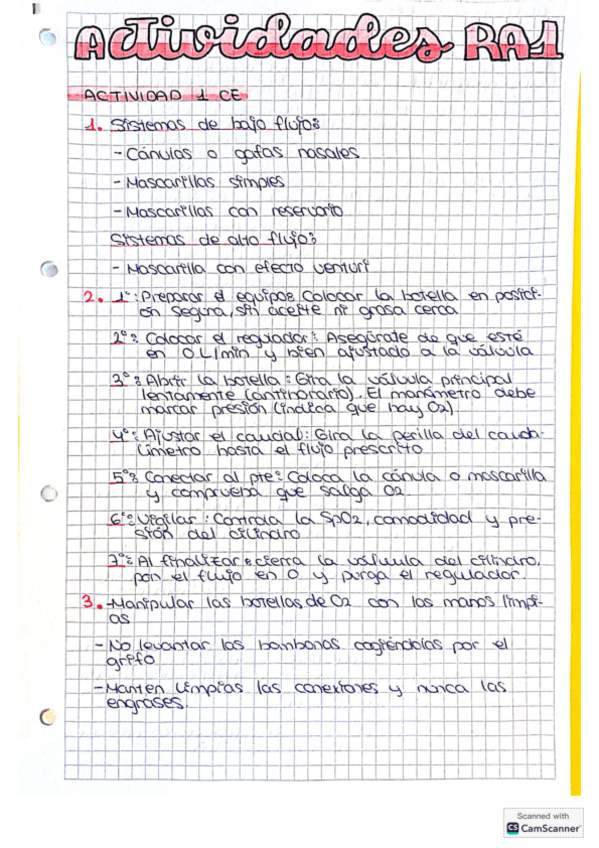 Actividades RA1
ACTIVIDAD 1 CE
1. Sistemas de bajo flujo:
- Cánulas o gafas nasales
- Mascarillas simples
- Mascarillas con reservorio
Sistemas de alto flujo:
- Mascarilla con efecto venturi
2. 1º: Preparar el equipo: Colocar la botella en posici-
ón segura, sin aceite ni grasa cerca
2º: Colocar el regulador: Asegúrate de que esté
en 0 L/min y bien ajustado a la válvula
3º: Abrir la botella: Gira la válvula principal
lentamente (antihorario). El manómetro debe
marcar presión (indica que hay O2).
4º: Ajustar el caudal: Gira la perilla del cauda-
límetro hasta el flujo prescrito
5º: Conectar al pte: Coloca la cánula o mascarilla
y comprueba que salga O2.
6º: Vigilar: Controla la SpO2, comodidad y pre-
sión del cilindro
7º: Al finalizar: cierra la válvula del cilindro,
pon el flujo en 0 y purga el regulador.
3. - Manipular las botellas de O2 con las manos limpi-
as
- No levantar las bombonas cogiéndolas por el
grifo
- Manten limpias las conexiones y nunca las
engrases.
Scanned with
CS CamScanner